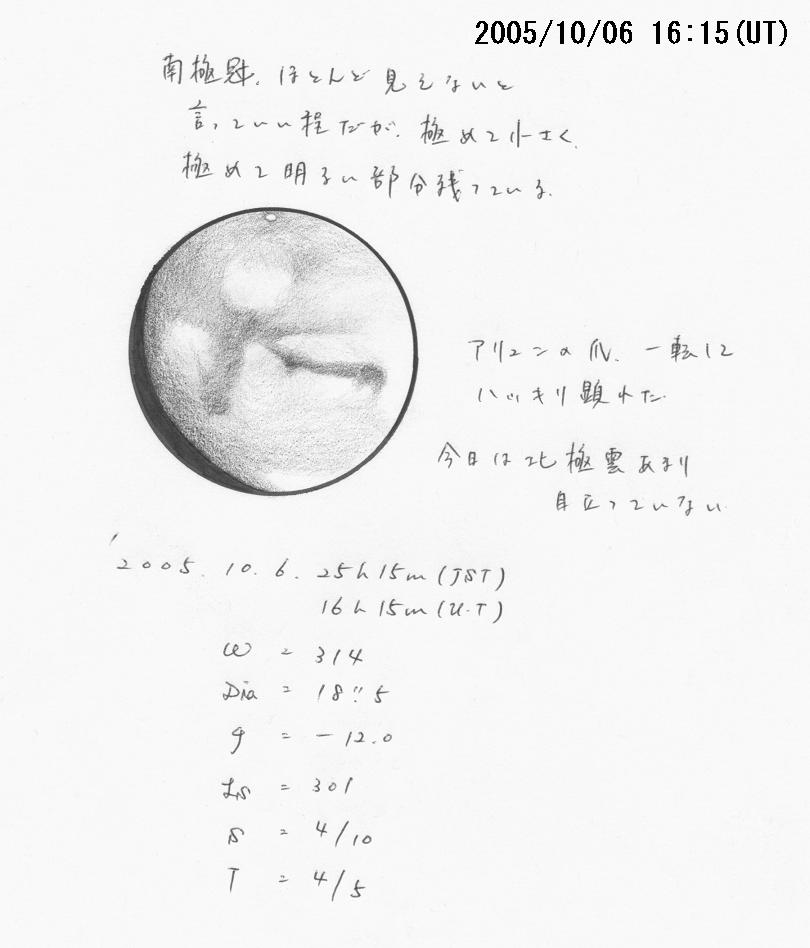 2005/10/06 16:15(UT)
南極冠、ほとんど見えないと
言っていい程だが、極めて小さく、
極めて明るい部分残っている。
アリュンの爪、一転して
ハッキリ顕れた
今日は北極雲あまり
目立っていない
'2005. 10. 6. 25h 15m (JST)
16h 15m (U.T)
ω = 314
Dia = 18".5
φ = -12.0
Ls = 301
S = 4/10
T = 4/5